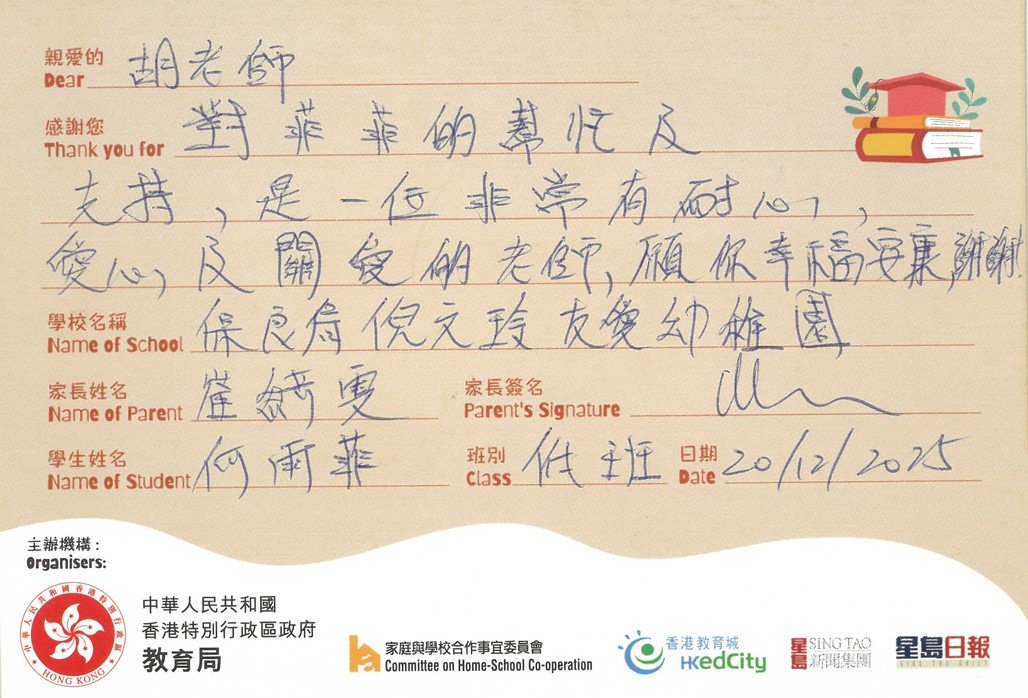 親愛的
Dear 胡老師
感謝您
Thank you for 對菲菲的幫忙及
支持，是一位非常有耐心，
愛心，及關愛的老師，願你幸福安康，謝謝！
學校名稱
Name of School 保良局倪文玲友愛幼稚園
家長姓名 家長簽名
Name of Parent 崔綺雯 Parent's Signature
學生姓名 班別 日期
Name of Student 何雨菲 Class 低班 Date 20/12/2025
主辦機構：
Organisers:
中華人民共和國香港特別行政區
HONG KONG
中華人民共和國
香港特別行政區政府
教育局
家庭與學校合作事宜委員會
Committee on Home-School Co-operation
香港教育城
HKedCity
星島 SING TAO
新聞集團
星島日報
SING TAO DAILY